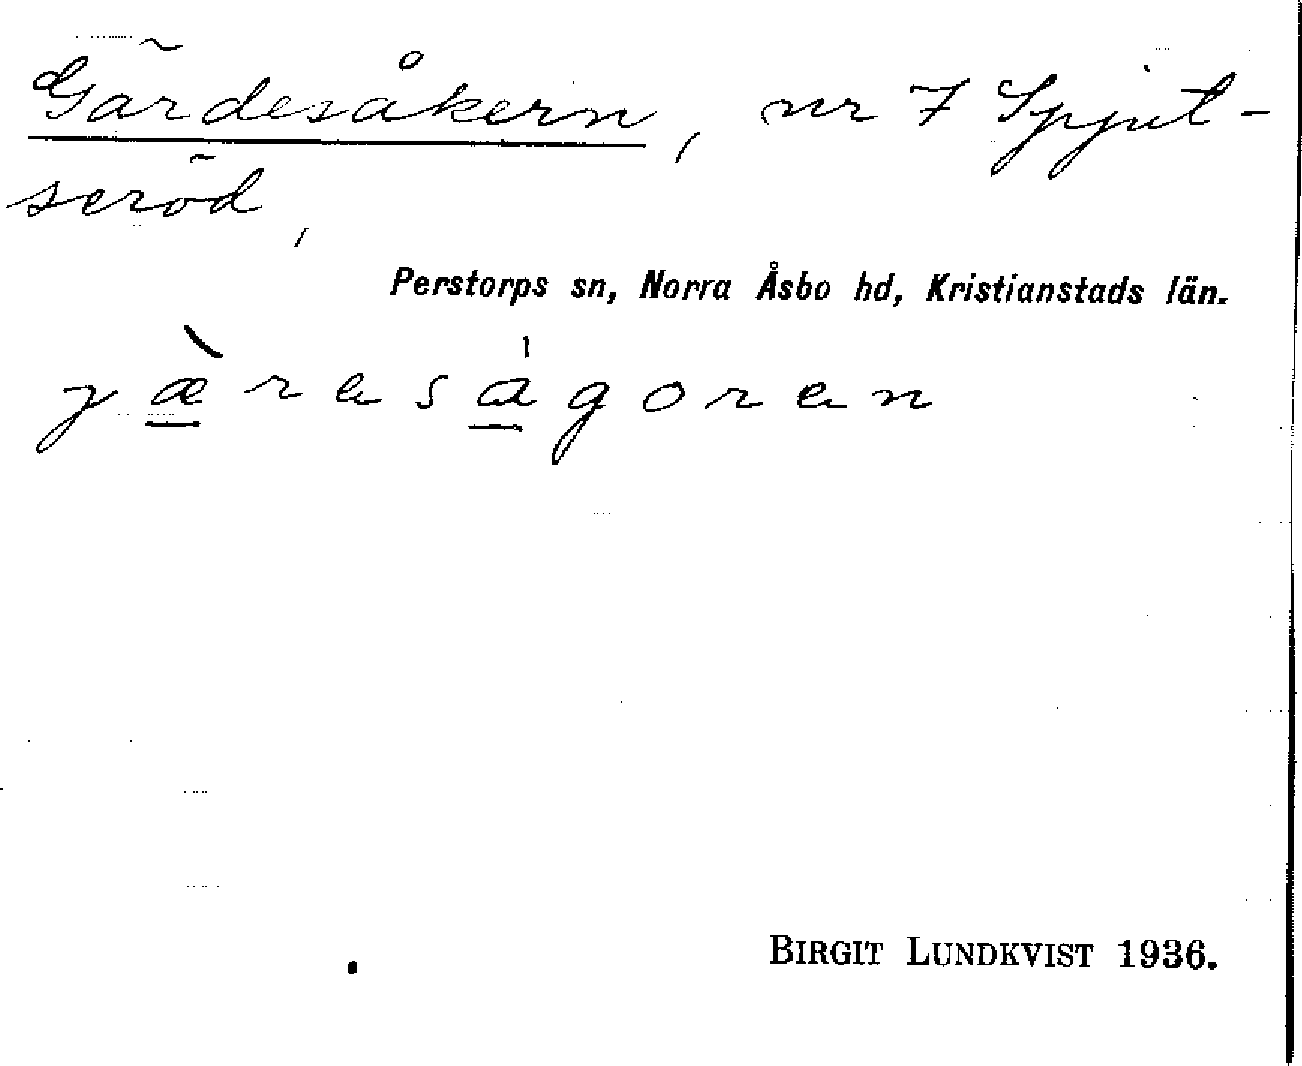 Gärdesåkern, nr 7 Spjut-
seröd,
Perstorps sn, Norra Åsbo hd, Kristianstads län.
jæ̀resågoren
BIRGIT LUNDKVIST 1936.